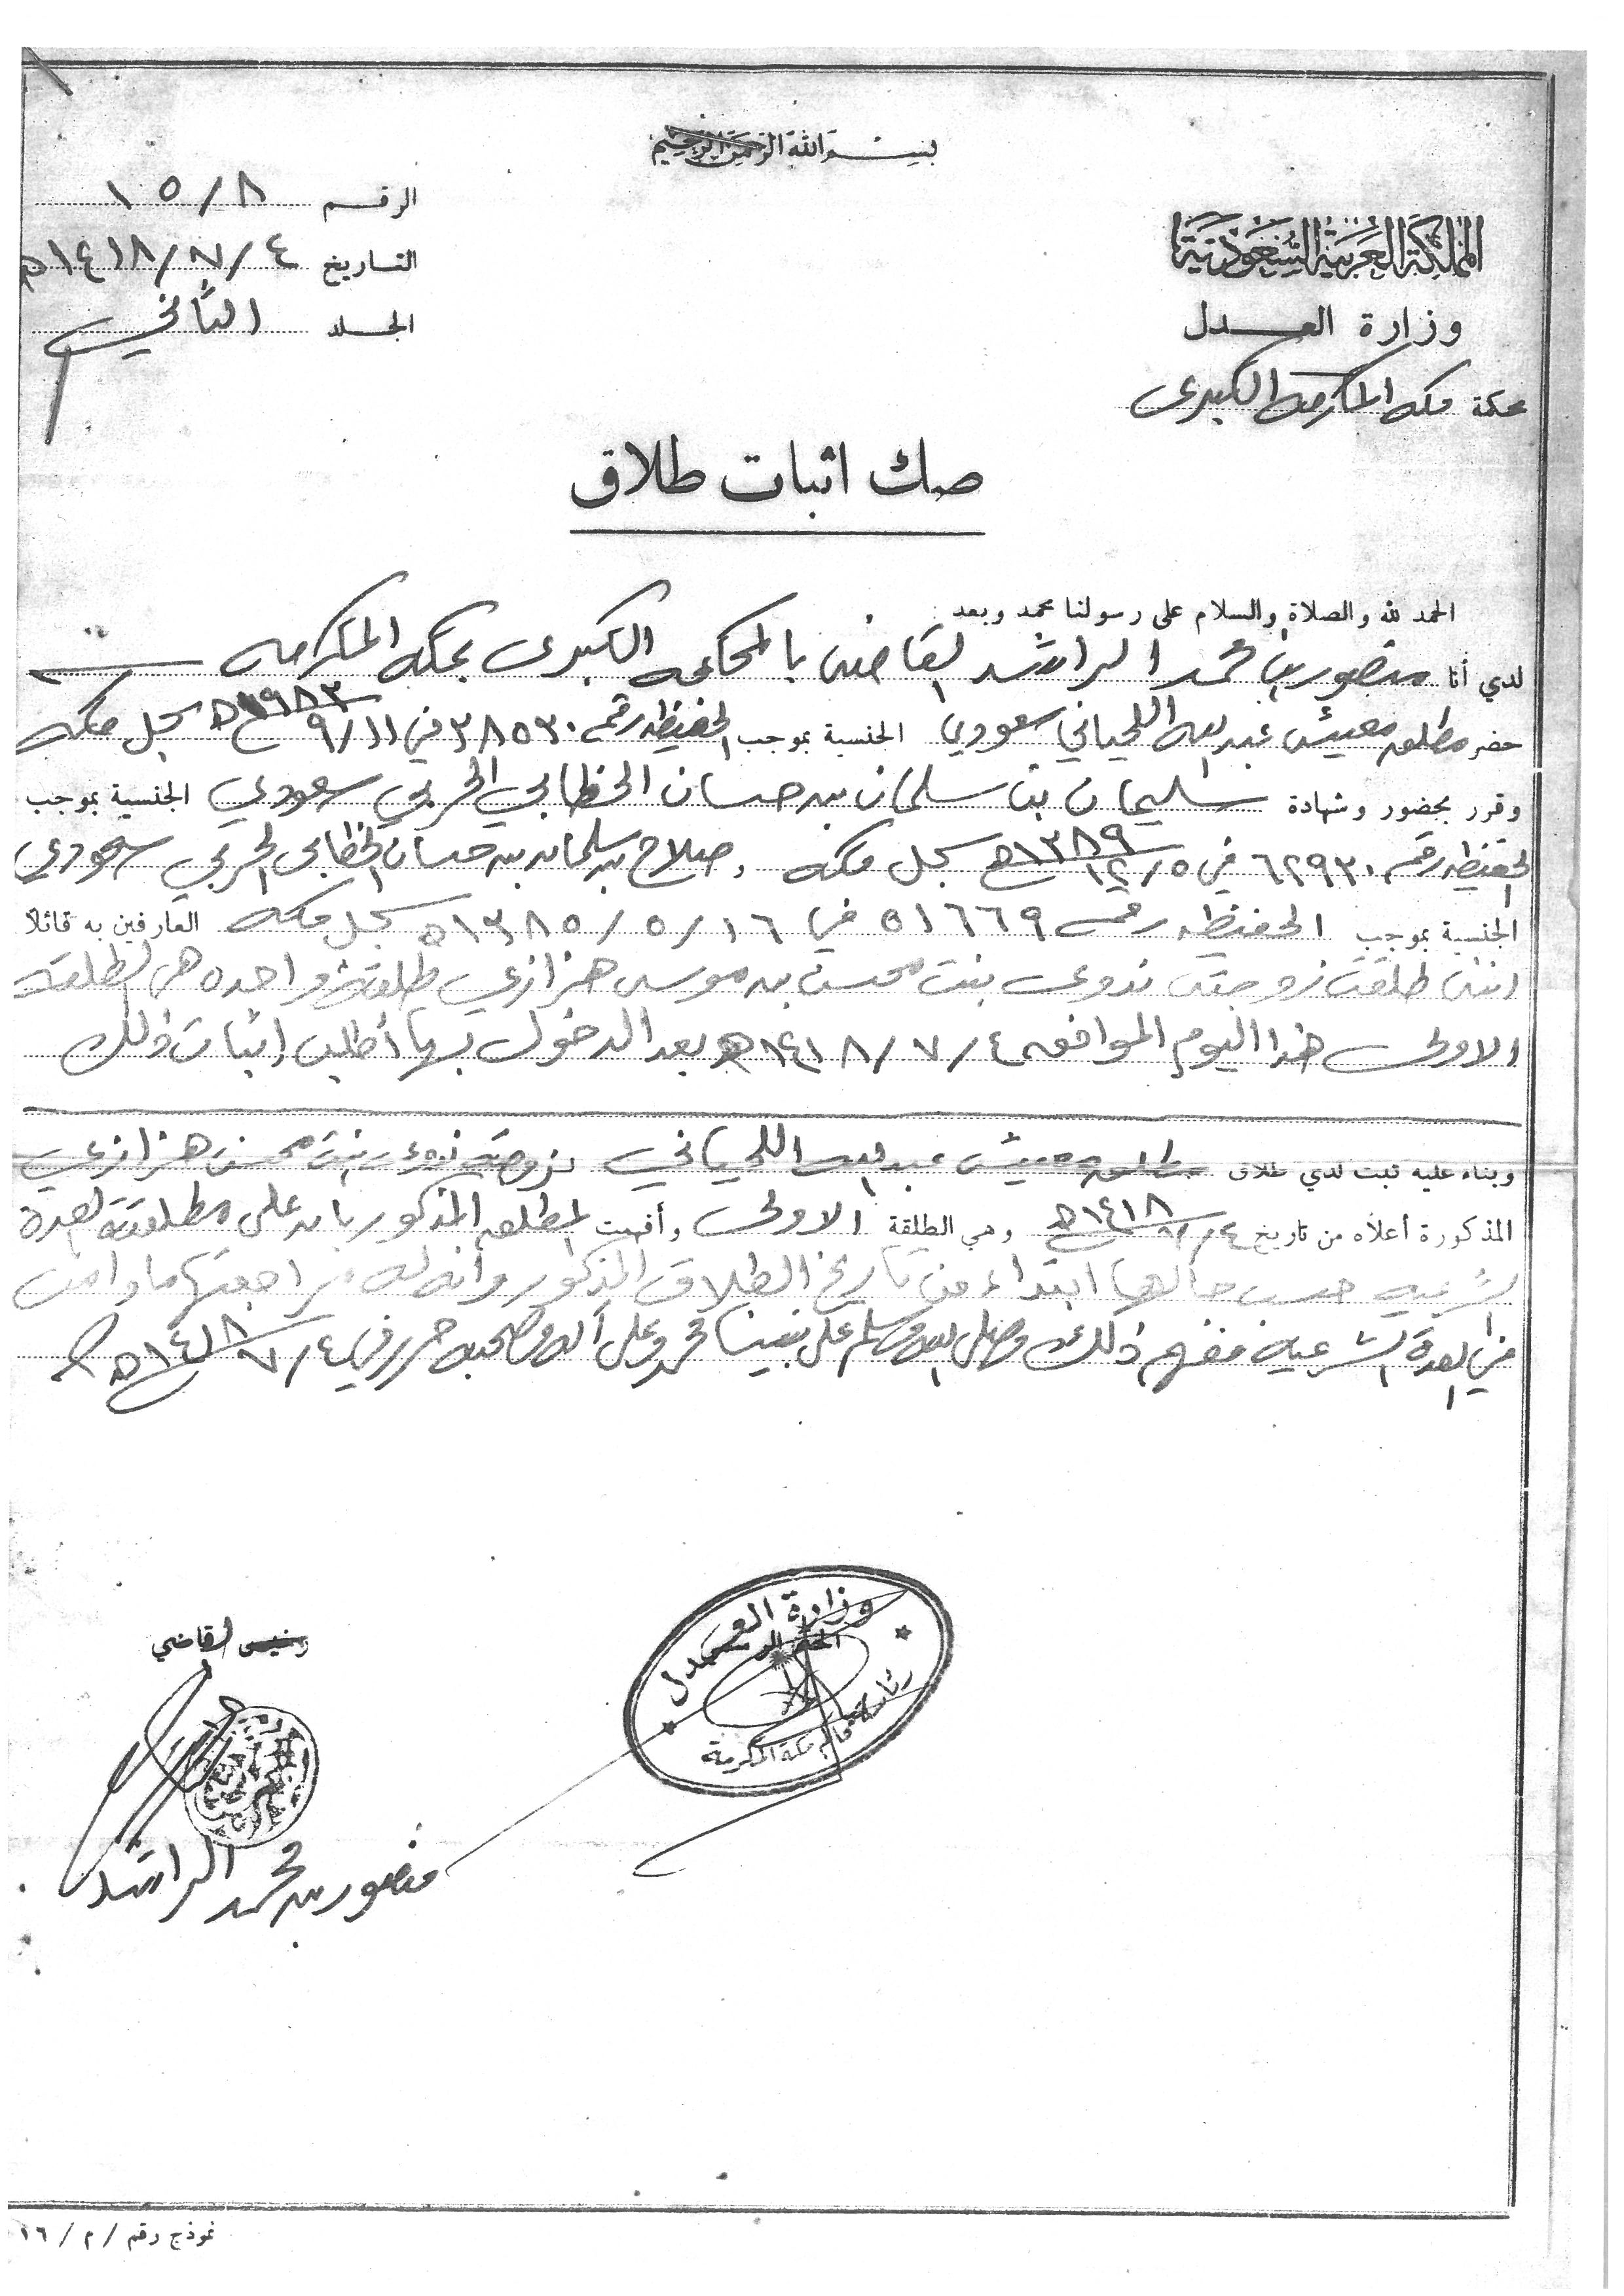 بسم الله الرحمن الرحيم
المملكة العربية السعودية
وزارة العدل
محكمة مكه المكرمه الكبرى
الرقم ١٥/٨
التاريخ ١٤١٨/٧/٤هـ
الجلد الثاني
صك اثبات طلاق
الحمد لله والصلاة والسلام على رسولنا محمد وبعد
لدي أنا منصور بن محمد الراشد القاضي بالمحكمه الكبرى بمكه المكرمه
حضر مطلق معيش عبدالله اللحياني سعودي الجنسية بموجب الحفيظه رقم ٣٨٥٣٠ في ٩/١١ سجل مكه
وقرر بحضور وشهادة سليمان بن سلمان بن حسان الخطابي الحربي سعودي الجنسية بموجب
الحفيظه رقم ٦٢٩٣٠ في ١٢/٥/١٣٨٩هـ سجل مكه وصلاح بن سلمان بن حسان الخطابي الحربي سعودي
الجنسية بموجب الحفيظه رقم ٥١٦٦٩ في ١٦/٥/١٣٨٥هـ سجل مكه العارفين به قائلا
انني طلقت زوجتي ندوى بنت محسن بن موسى هزازي طلقة واحده هي الطلقه
الاولى هذا اليوم الموافق ١٤١٨/٧/٤هـ بعد الدخول بها أطلب اثبات ذلك
وبناء عليه ثبت لدي طلاق مطلق معيش عبدالله اللحياني زوجته ندوى بنت محسن هزازي
المذكورة أعلاه من تاريخ ١٤١٨/٧/٤هـ وهي الطلقة الاولى وأفهمت المطلق المذكور بان على مطلقته العدة
الشرعيه حسب حالها ابتداء من تاريخ الطلاق المذكور وأنه له مراجعتها مادامت
في العدة الشرعية ففهم ذلك وصلى الله وسلم على نبينا محمد وعلى آله وصحبه حرر في ١٤١٨/٧/٤هـ
القاضي
منصور بن محمد الراشد
وزارة العدل
رئاسة محاكم مكة المكرمة
نموذج رقم /م/١٦